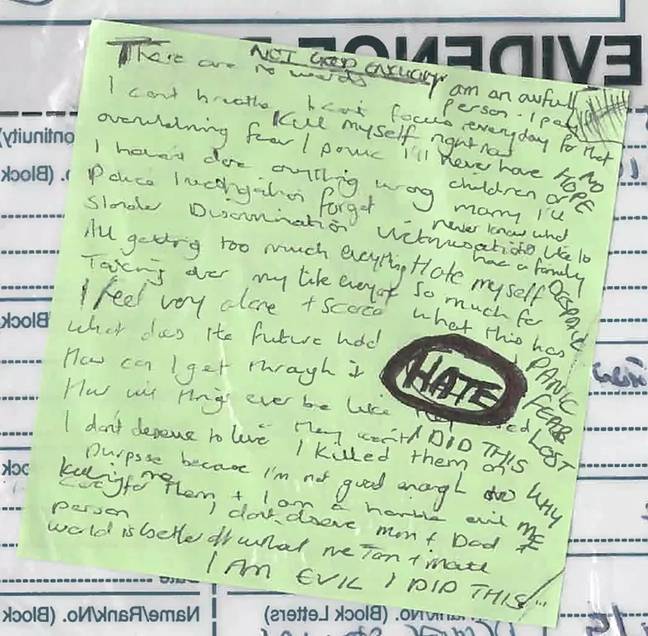 EVIDENCE
NOT GOOD ENOUGH
There are no words
I am an awful person - I pay every day for that
I cant breathe I cant focus
overwhelming fear / panic
Kill myself right now
I'll never have children or marry
NO HOPE
I haven't done anything wrong
I'll never know what it's like to have a family
Police Investigation forget
Slander Discrimination Victimisation
All getting too much everything
Hate myself so much for what this has
DESPAIR
Taking over my life everyone
I feel very alone + scared
What does the future hold
PANIC
How can I get through it
HATE
FEAR
How will things ever be like
LOST
they won't
I DID THIS
I don't deserve to live I killed them on
purpose because I'm not good enough to
WHY ME
care for them + I am a horrible evil
killing me
person I don't deserve mum + Dad
world is better off without me Tom + mate
I AM EVIL I DID THIS
Continuity
No. (Block)
Block
Name/Rank/No. (Block)
Rank/No. (Block Letters)